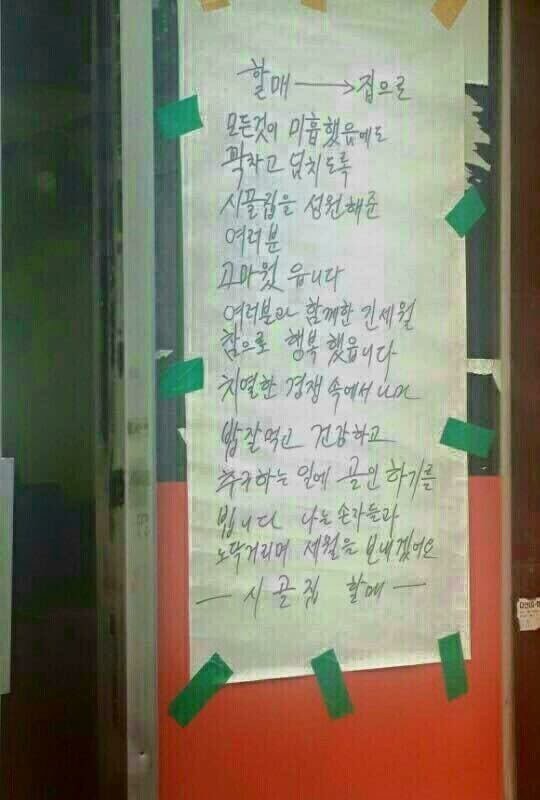 할매 → 집으로
모든것이 미흡했읍에도
꽉차고 넘치도록
시골집을 성원해준
여러분
고마웠읍니다
여러분과 함께한 긴세월
참으로 행복했읍니다
치열한 경쟁속에서
밥잘먹고 건강하고
추구하는 일에 골인하기를
빕니다 나는 손자들과
노닥거리며 세월을 보내겠어요
— 시골집 할매 —